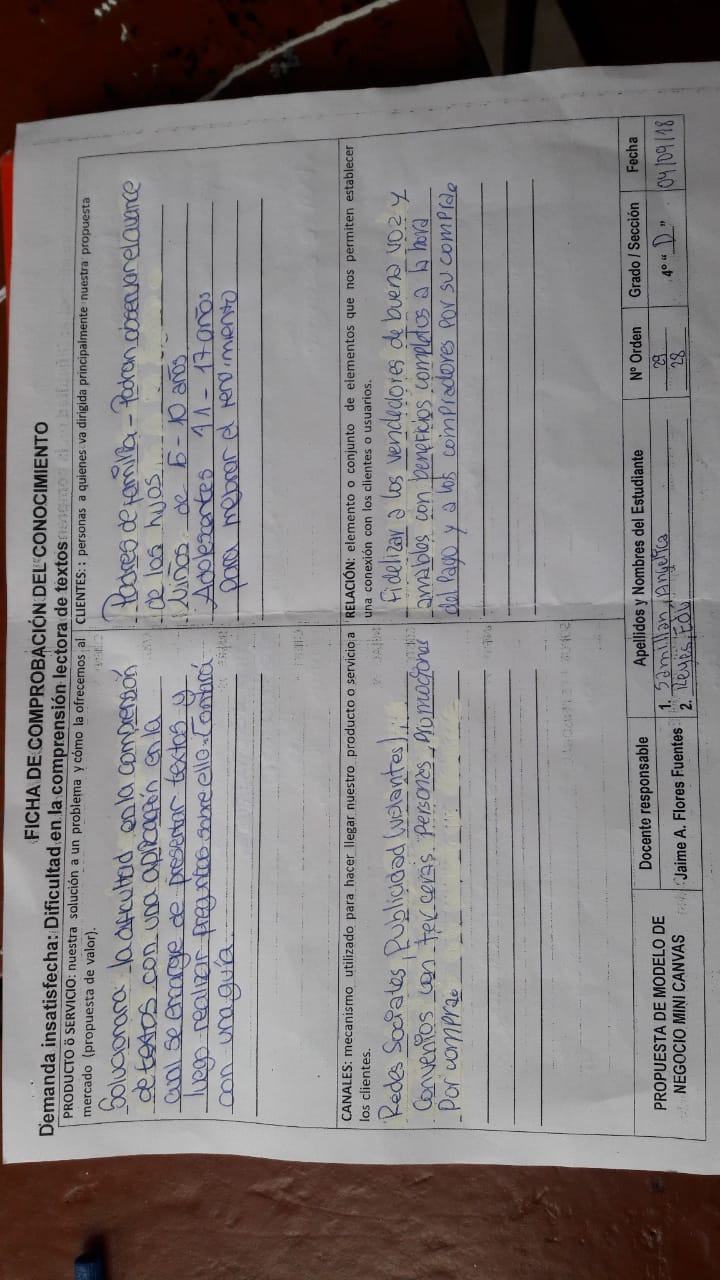 FICHA DE COMPROBACIÓN DEL CONOCIMIENTO
Demanda insatisfecha: Dificultad en la comprensión lectora de textos
PRODUCTO ö SERVICIO: nuestra solución a un problema y cómo la ofrecemos al
mercado (propuesta de valor).
Solucionara la dificultad en la compensión
de textos con una aplicación en la
cual se encarge de presentar textos y
luego realizar preguntas sobre ello. Contará
con una guía.
CLIENTES: : personas a quienes va dirigida principalmente nuestra propuesta
Padres de familia - Podran observar el avance
de los hijos
Niños de 5 - 10 años
Adolescentes 11 - 17 años
para mejorar el rendimiento
CANALES: mecanismo utilizado para hacer llegar nuestro producto o servicio a
los clientes.
Redes Sociales, Publicidad (volantes),
Convenios con terceras personas, Promociones
Por compra.
RELACIÓN: elemento o conjunto de elementos que nos permiten establecer
una conexión con los clientes o usuarios.
Fidelizar a los vendedores de buena voz y
amables con beneficios completos a la hora
del Pago y a los compradores por su compra.
PROPUESTA DE MODELO DE
NEGOCIO MINI CANVAS
Docente responsable
Jaime A. Flores Fuentes
Apellidos y Nombres del Estudiante
1. Samillan, Angelica
2. Reyes, Edu
Nº Orden
29
28
Grado / Sección
4° " D "
Fecha
04/09/18